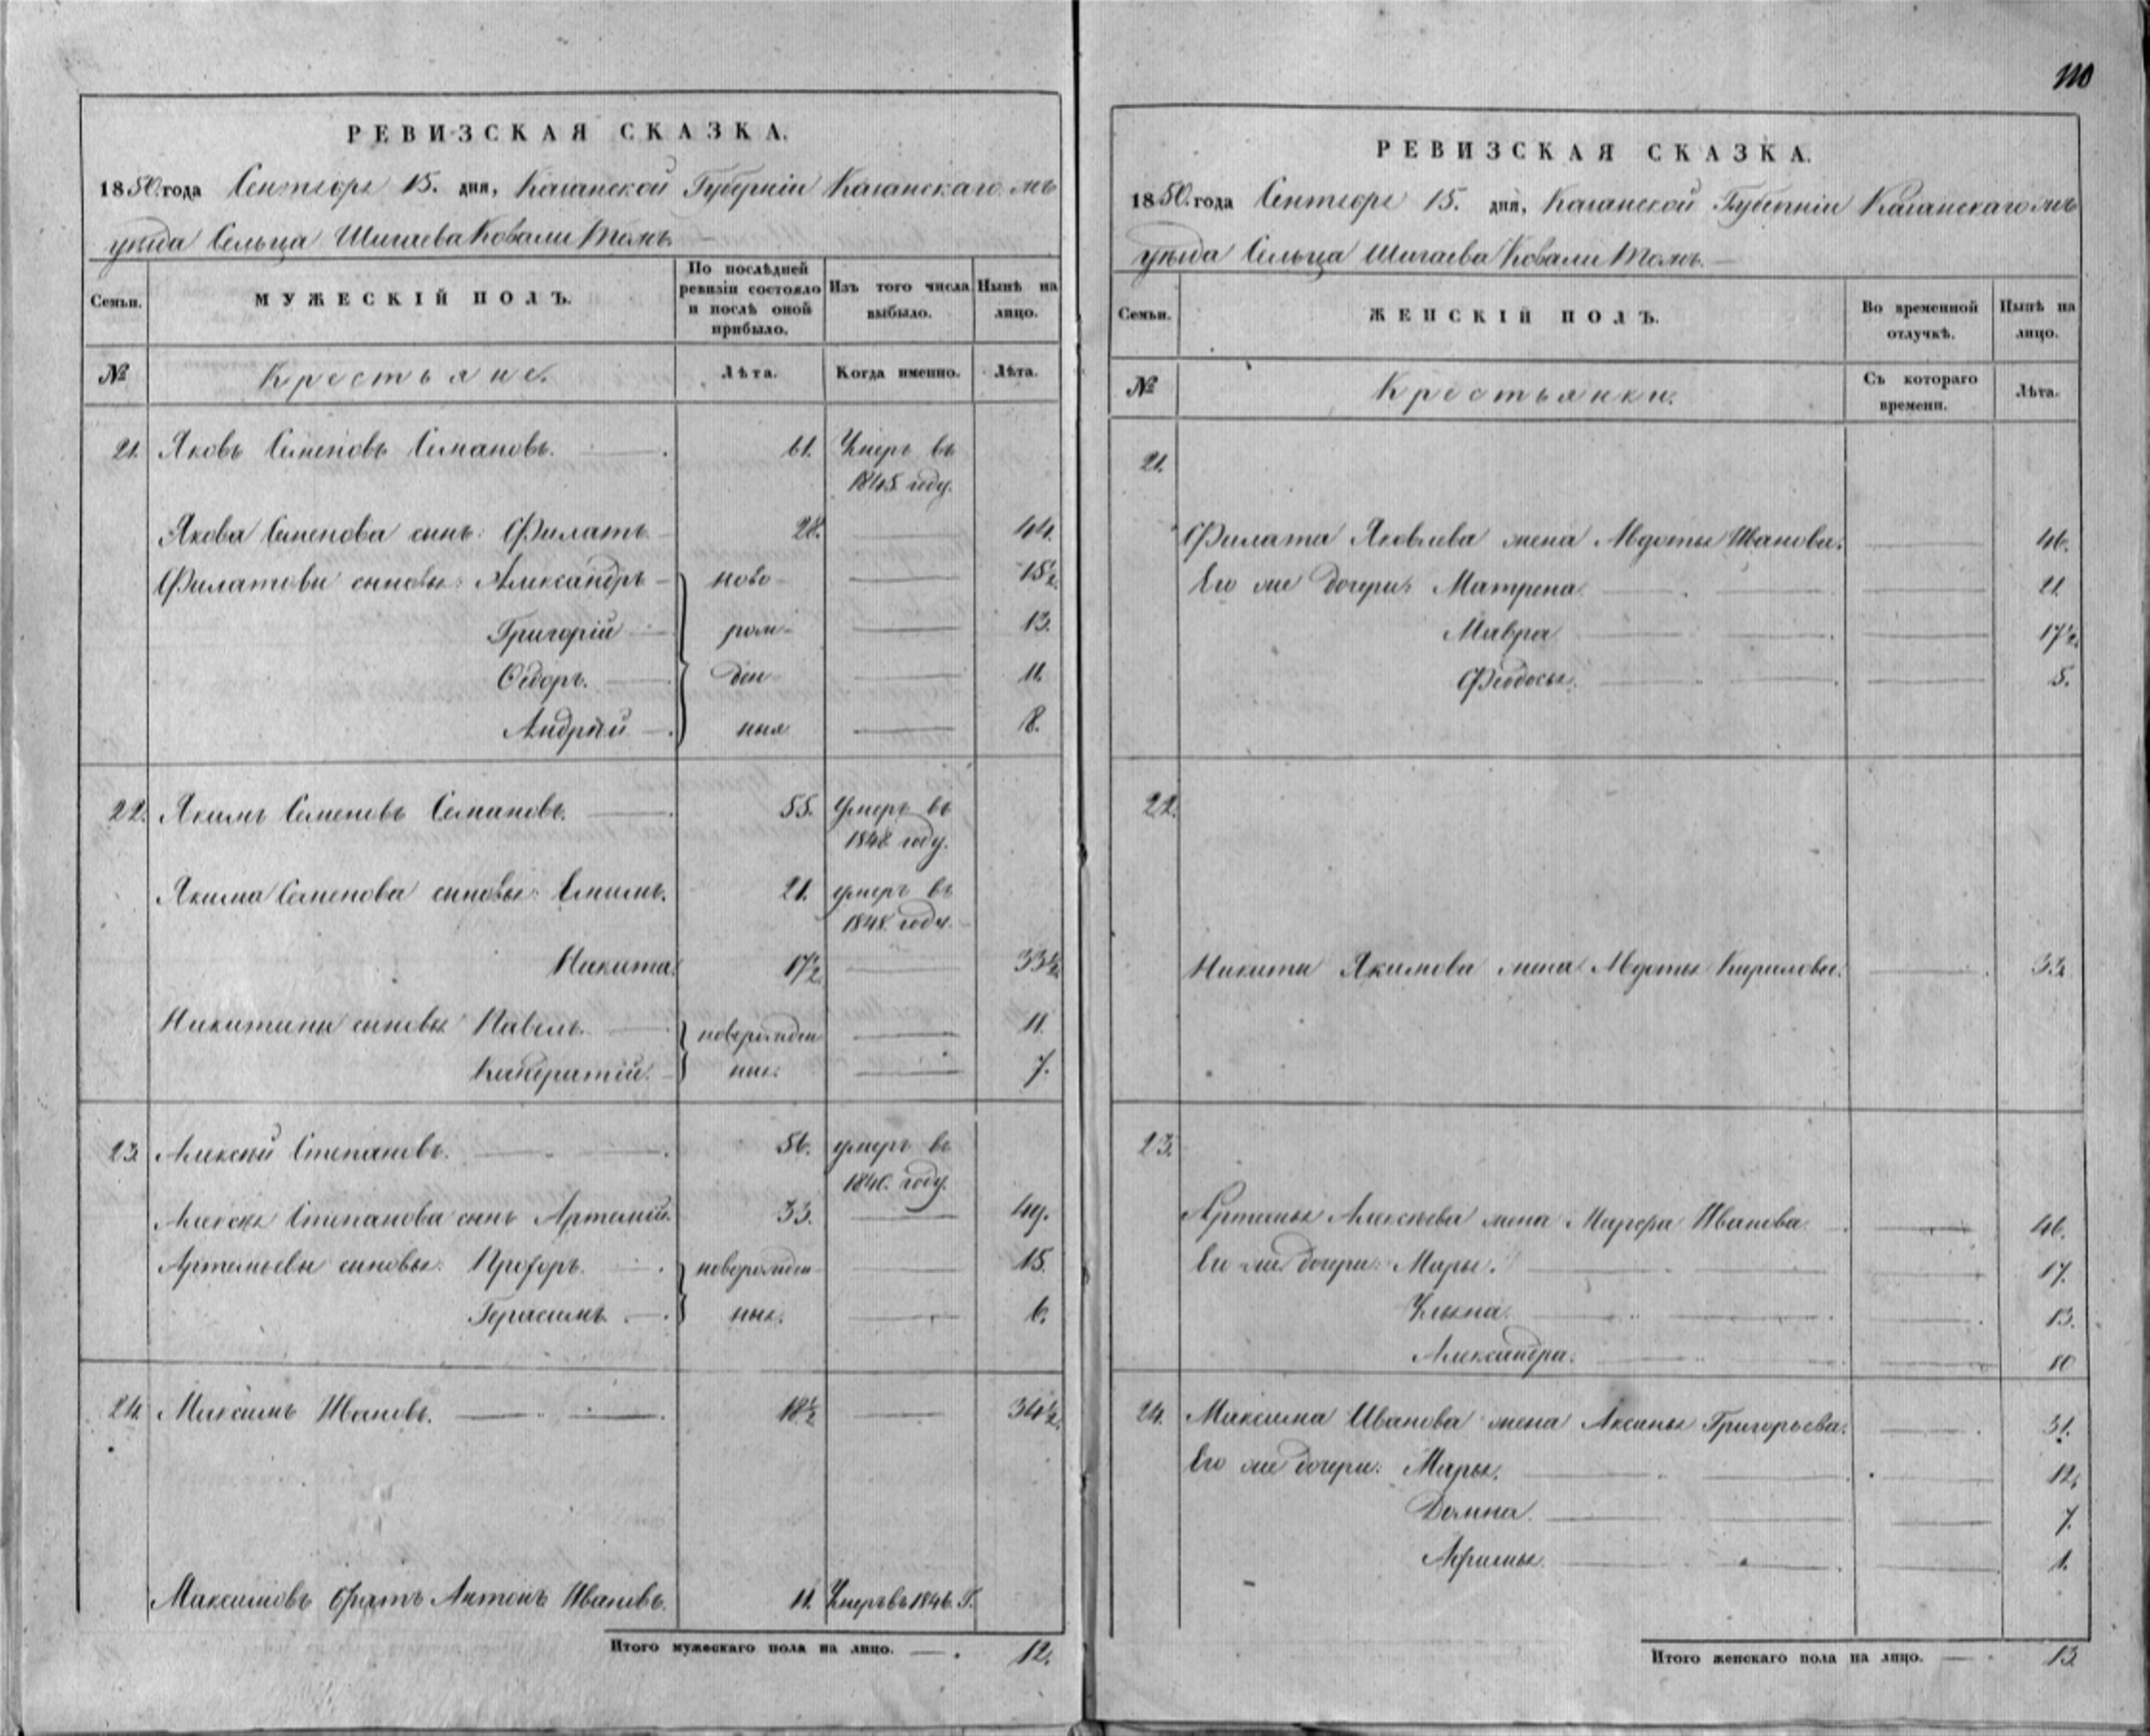 110
РЕВИЗСКАЯ СКАЗКА.
1850. года Сентября 15. дня, Казанской Губерніи Казанскаго
уезда Сельца Шигаева Ковали тожъ
Семьи. МУЖЕСКІЙ ПОЛЪ. По послѣдней ревизіи состояло и послѣ оной прибыло. Изъ того числа выбыло. Нынѣ на лицо.
№ Крестьяне. Лѣта. Когда именно. Лѣта.
21. Яковъ Семеновъ Семановъ. 61. Умеръ въ
1845 году.
Якова Семенова сынъ: Филатъ 28. 44.
Филатовы сыновья: Александръ ново 15½
Григорій рож- 13.
Ѳедоръ. ден 11.
Андрей ныя 8.
22. Якимъ Семеновъ Семановъ. 55. умеръ въ
1848 году.
Якима Семенова сыновья: 21. умеръ въ
1848 году.
Никита. 17½ 33½
Никитины сыновья Павелъ. новорожден 11.
Кандратій. ныя. 7.
23. Алексей Степановъ. 56. умеръ въ
1840. году.
Алексея Степанова сынъ Артемій. 33. 49.
Артемьевы сыновья: Профоръ. новорожден 15.
Герасимъ. ныя. 6.
24. Максимъ Ивановъ. 18½ 34½
Максимовъ братъ Антонъ Ивановъ. 11. Умеръ въ 1846. Г.
Итого мужескаго пола на лицо. 12.
РЕВИЗСКАЯ СКАЗКА.
1850. года Сентября 15. дня, Казанской Губерніи Казанскаго
уезда Сельца Шигаева Ковали тожъ.
Семьи. ЖЕНСКІЙ ПОЛЪ. Во временной отлучкѣ. Нынѣ на лицо.
№ Крестьянки. Съ котораго времени. Лѣта.
21.
Филата Яковлева жена Авдотья Иванова. 46.
Его же дочери: Матрена 21
Мавра 17½
Феодосья. 5.
22.
Никиты Якимова жена Авдотья Кирилова. 33
23.
Артемья Алексеева жена Марфа Иванова 46.
Его же дочери: Марья. 17.
Ульяна. 13.
Александра. 10
24. Максима Иванова жена Аксинья Григорьева. 31.
Его же дочери: Марья. 12.
Домна. 7.
Афимья. 1.
Итого женскаго пола на лицо. 13